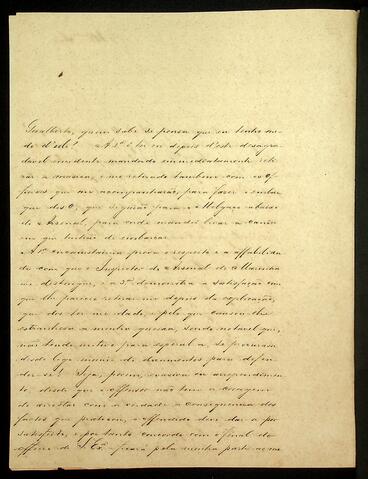 Gualberto, quem sabe se pensa que eu tenho me-
do d'elle? A 2ª é ter eu depois d'este desagra-
davel incidente mandado immediatamente reti-
rar a musica, e me retirado tambem com os Of-
ficiaes que me acompanharão, para fazer embar-
que que seguião para o Melgaço abaixo
do Arsenal, para onde mandei levar a canôa
em que tinhão de embarcar.
A 1ª circumstancia prova o respeito e a affabilida-
de com que o Inspector do Arsenal de Marinha
me distingue, e a 3ª demonstra a satisfação em
que lhe pareceu retirar-me depois da explicação,
que diz ter-me dado, e pelo que causou-lhe
estranheza a minha queixa, sendo notavel que,
não tendo motivo para esperal-a, se procurasse
desde logo munir de documentos para defen-
der-se! Seja, porem, evasiva ou arrependimen-
to, desde que o offensor não tem a coragem
de arrostar com a verdade a consequencia dos
factos que praticou, o offendido deve dar-se por
satisfeito, e portanto concordo com o final do
officio de S. Exª. ficará pela minha parte